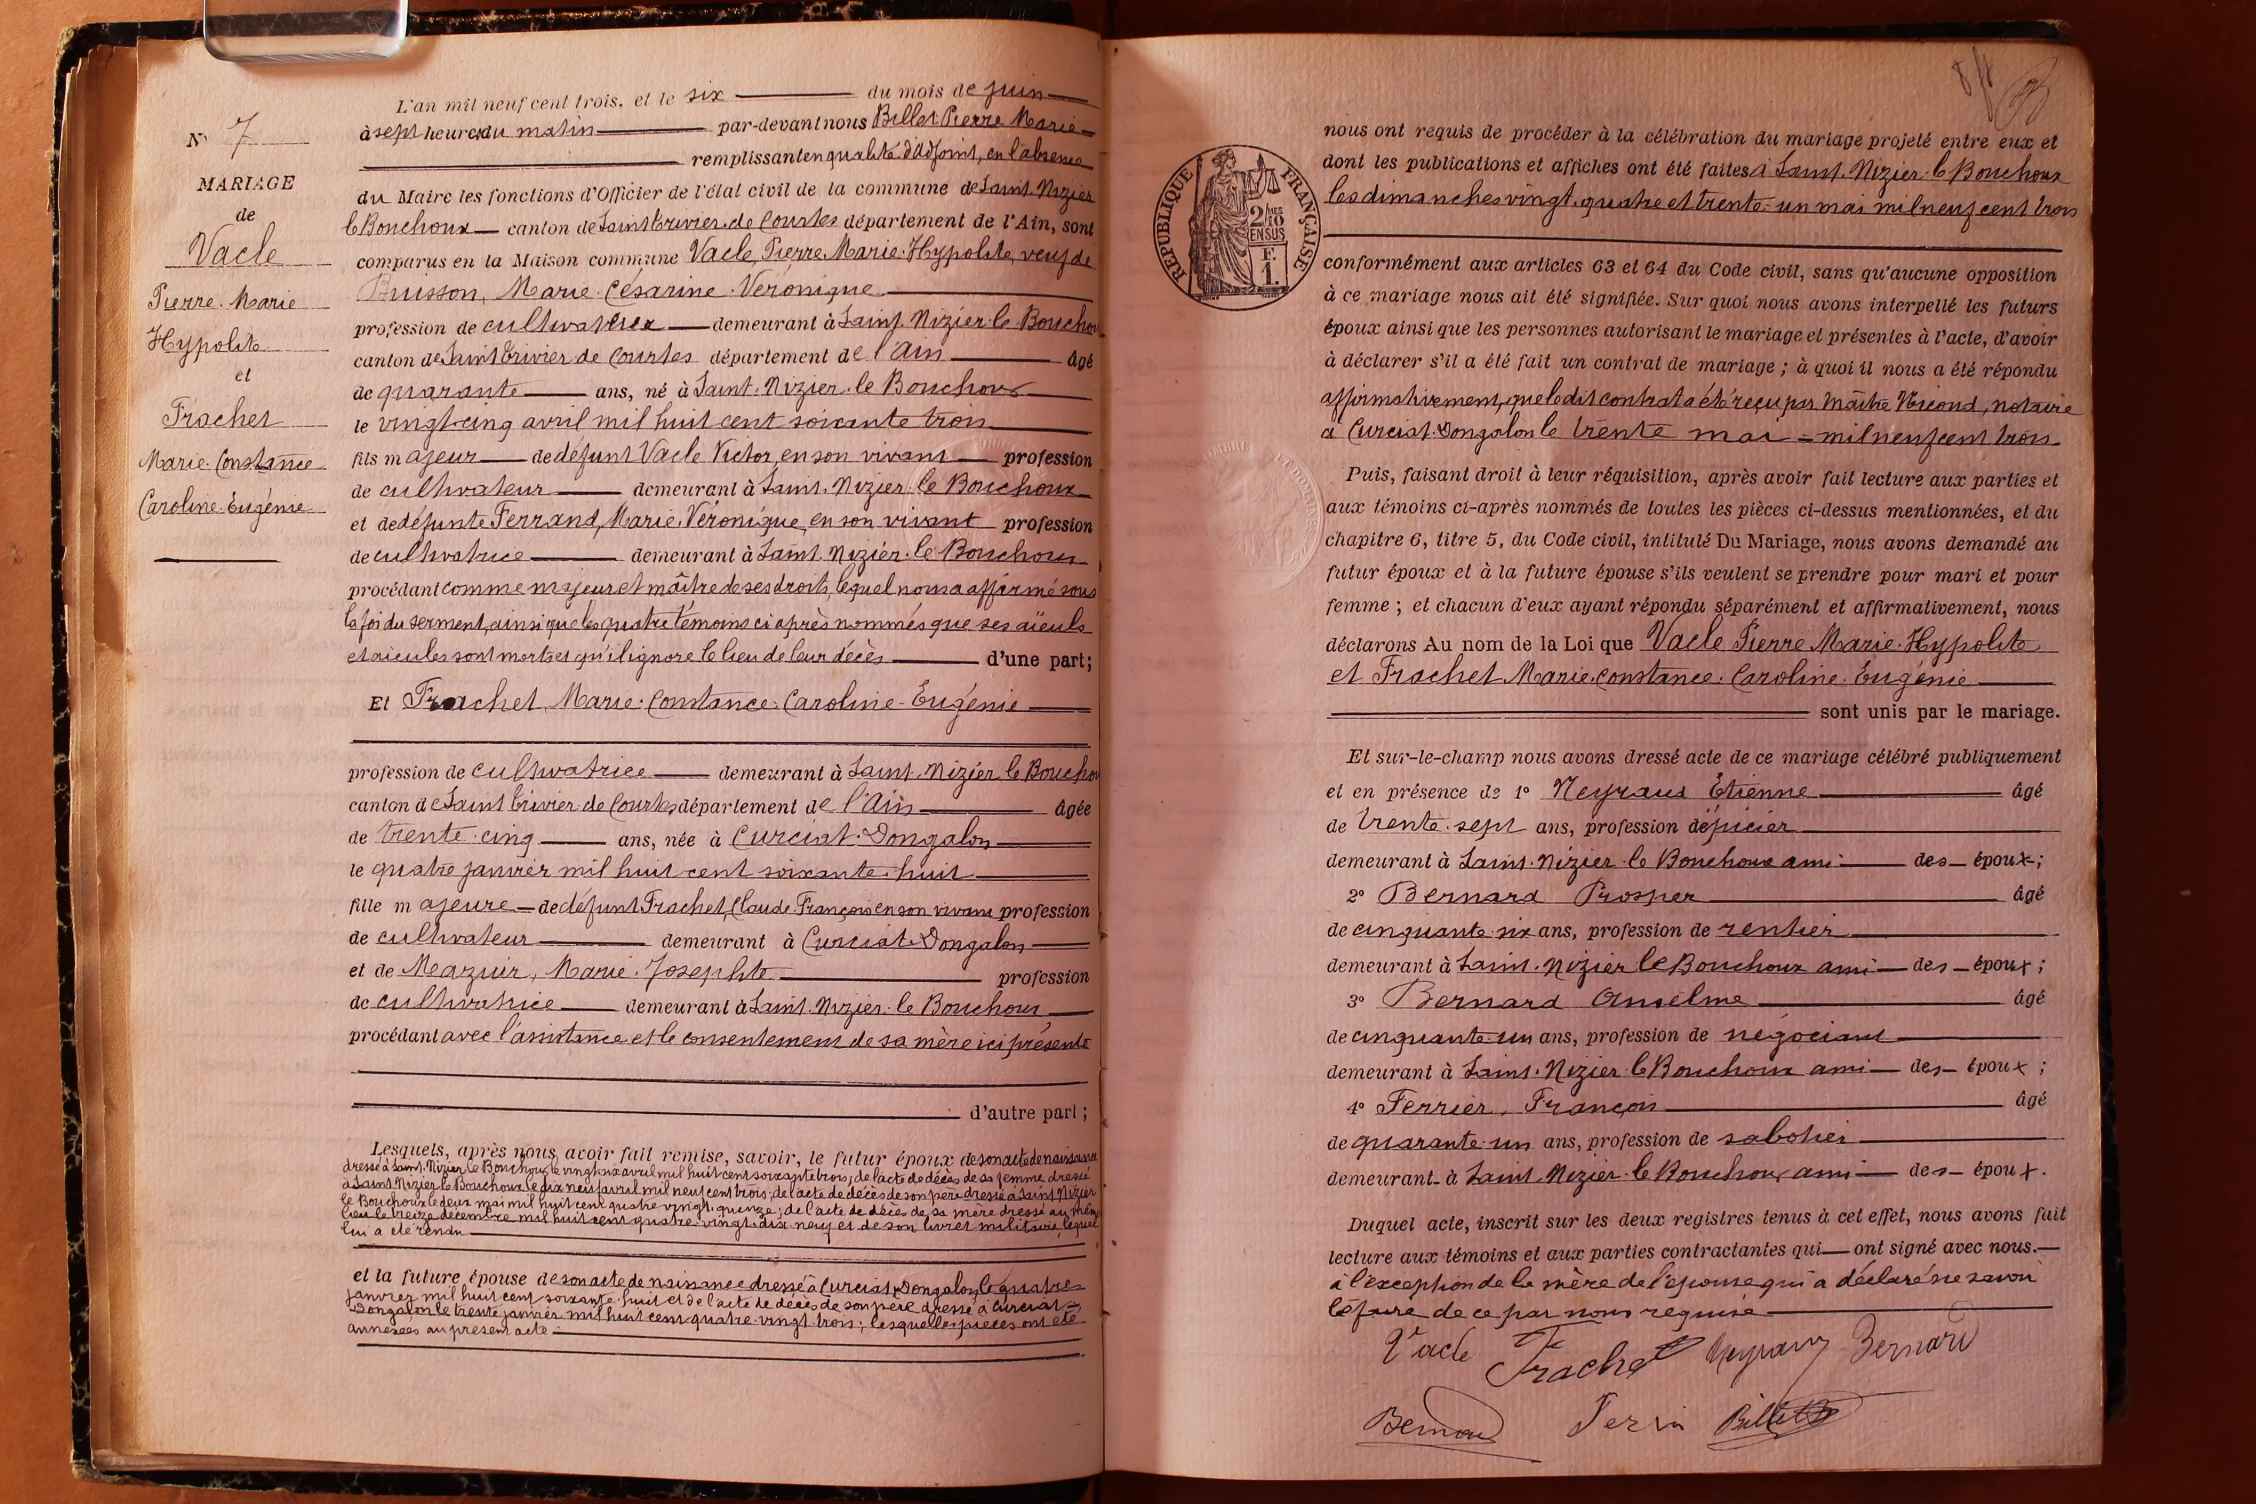 N° 7
MARIAGE
de
Vacle
Pierre Marie
Hypolite
et
Frachet
Marie Constance
Caroline Eugénie
L'an mil neuf cent trois, et le six du mois de juin
à sept heures du matin par-devant nous Billet Pierre Marie
remplissant en qualité d'adjoint, en l'absence
du Maire les fonctions d'Officier de l'état civil de la commune de Saint-Nizier
le Bouchoux canton de Saint Trivier de Courtes département de l'Ain, sont
comparus en la Maison commune Vacle, Pierre Marie Hypolite, veuf de
Buisson, Marie Césarine Véronique
profession de cultivateur demeurant à Saint-Nizier le Bouchoux
canton de Saint Trivier de Courtes département de l'Ain âgé
de quarante ans, né à Saint-Nizier le Bouchoux
le vingt-cinq avril mil huit cent soixante trois
fils majeur de défunt Vacle Victor, en son vivant profession
de cultivateur demeurant à Saint-Nizier le Bouchoux
et de défunte Ferrand, Marie Véronique, en son vivant profession
de cultivatrice demeurant à Saint-Nizier le Bouchoux
procédant comme majeur et maître de ses droits, lequel nous a affirmé sous
la foi du serment, ainsi que les quatre témoins ci après nommés que ses aïeuls
et aieules sont morts et qu'il ignore le lieu de leur décès d'une part;
Et Frachet, Marie Constance Caroline Eugénie
profession de cultivatrice demeurant à Saint-Nizier le Bouchoux
canton de Saint Trivier de Courtes département de l'Ain âgée
de trente-cinq ans, née à Curciat-Dongalon
le quatre janvier mil huit cent soixante-huit
fille majeure de défunt Frachet, Claude François en son vivant profession
de cultivateur demeurant à Curciat-Dongalon
et de Mazuir, Marie Josephte profession
de cultivatrice demeurant à Saint-Nizier le Bouchoux
procédant avec l'assistance et le consentement de sa mère ici présente
d'autre part;
Lesquels, après nous avoir fait remise, savoir, le futur époux de son acte de naissance
dressé à Saint-Nizier le Bouchoux le vingt six avril mil huit cent soixante trois; de l'acte de décès de sa femme dressé
à Saint-Nizier le Bouchoux le dix neuf avril mil neuf cent trois; de l'acte de décès de son père dressé à Saint-Nizier
le Bouchoux le deux mai mil huit cent quatre-vingt-quinze; de l'acte de décès de sa mère dressé au même
lieu le treize décembre mil huit cent quatre-vingt-dix neuf et de son livret militaire, lequel
lui a été rendu
et la future épouse de son acte de naissance dressé à Curciat-Dongalon le quatre
janvier mil huit cent soixante-huit et de l'acte de décès de son père dressé à Curciat-
Dongalon le trente janvier mil huit cent quatre-vingt trois; lesquelles pièces ont été
annexées au présent acte
nous ont requis de procéder à la célébration du mariage projeté entre eux et
dont les publications et affiches ont été faites à Saint-Nizier le Bouchoux
les dimanches vingt-quatre et trente-un mai mil neuf cent trois
RÉPUBLIQUE FRANÇAISE
2/10
EN SUS
F.
1.
conformément aux articles 63 et 64 du Code civil, sans qu'aucune opposition
à ce mariage nous ait été signifiée. Sur quoi nous avons interpellé les futurs
époux ainsi que les personnes autorisant le mariage et présentes à l'acte, d'avoir
à déclarer s'il a été fait un contrat de mariage; à quoi il nous a été répondu
affirmativement, que le dit contrat a été reçu par Maître notaire
à Curciat-Dongalon le trente mai mil neuf cent trois
Puis, faisant droit à leur réquisition, après avoir fait lecture aux parties et
aux témoins ci-après nommés de toutes les pièces ci-dessus mentionnées, et du
chapitre 6, titre 5, du Code civil, intitulé Du Mariage, nous avons demandé au
futur époux et à la future épouse s'ils veulent se prendre pour mari et pour
femme; et chacun d'eux ayant répondu séparément et affirmativement, nous
déclarons Au nom de la Loi que Vacle Pierre Marie Hypolite
et Frachet Marie Constance Caroline Eugénie
sont unis par le mariage.
Et sur-le-champ nous avons dressé acte de ce mariage célébré publiquement
et en présence de 1° Neyraud Étienne âgé
de trente-sept ans, profession d'épicier
demeurant à Saint-Nizier le Bouchoux ami des époux;
2° Bernard Prosper âgé
de cinquante-six ans, profession de rentier
demeurant à Saint-Nizier le Bouchoux ami des époux;
3° Bernard Anselme âgé
de cinquante-un ans, profession de négociant
demeurant à Saint-Nizier le Bouchoux ami des époux;
4° Ferrier, François âgé
de quarante-un ans, profession de sabotier
demeurant à Saint-Nizier le Bouchoux ami des époux.
Duquel acte, inscrit sur les deux registres tenus à cet effet, nous avons fait
lecture aux témoins et aux parties contractantes qui ont signé avec nous.
à l'exception de la mère de l'épouse qui a déclaré ne savoir
le faire de ce par nous requise
Vacle Frachet Neyraud Bernard
Bernard Billet